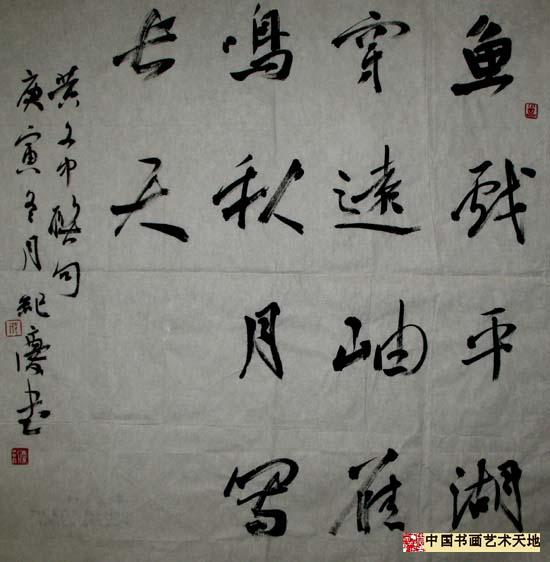 鱼戲平湖
穿遠岫雁
鳴秋月写
长天
黄文中联句
庚寅冬月 纪慶书
中国书画艺术天地